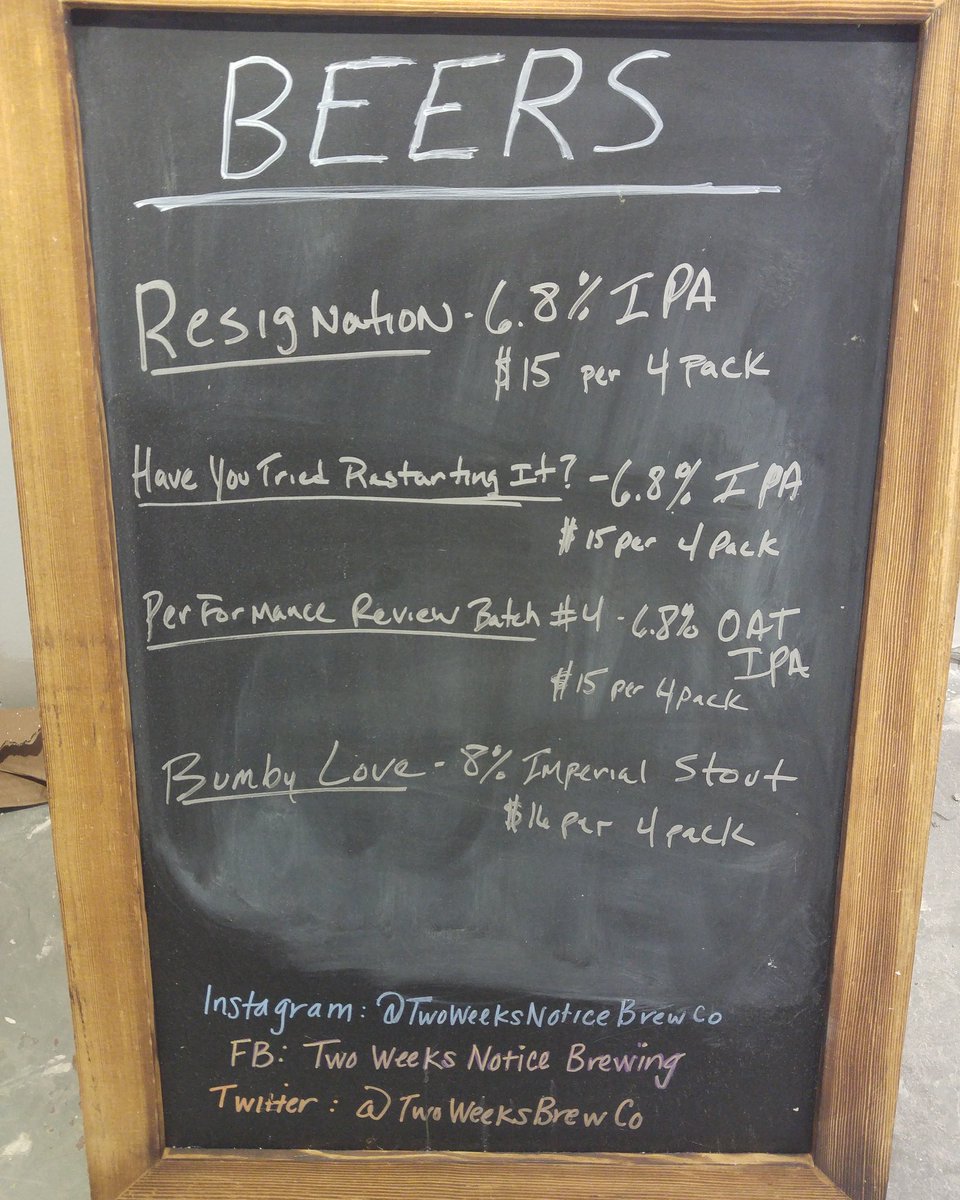 BEERS
Resignation - 6.8% IPA
$15 per 4 pack
Have You Tried Restarting It? - 6.8% IPA
$15 per 4 pack
Performance Review Batch #4 - 6.8% OAT
IPA
$15 per 4 pack
Bumby Love - 8% Imperial Stout
$16 per 4 pack
Instagram: @TwoWeeksNoticeBrewCo
FB: Two Weeks Notice Brewing
Twitter: @TwoWeeksBrewCo